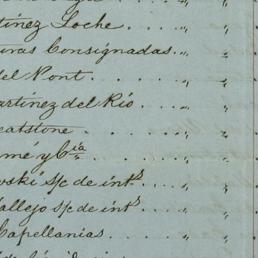 tinez Loche
uras Consignadas „ „
del Pont „ „
artinez del Rio „ „
eatstone „ „
mé y Cia „ „
wski S/c de ints „ „
allejo S/c de ints „ „
Capellanias „ „